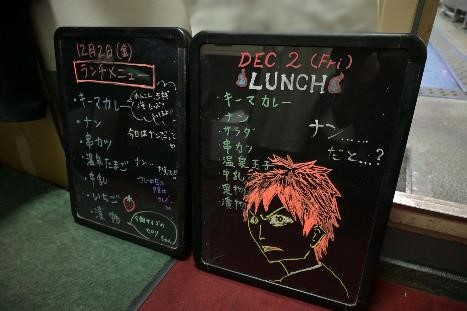 12月2日(金)
ランチメニュー
・キーマカレー
・ナン
・串カツ
・温泉たまご
・牛乳
・いちご
・漬物
今日はナンだって
ナン…
DEC 2 (Fri)
LUNCH
・キーマカレー
・ナン
・サラダ
・串カツ
・温泉玉子
・牛乳
・果物
・漬物
ナン……
だと…?